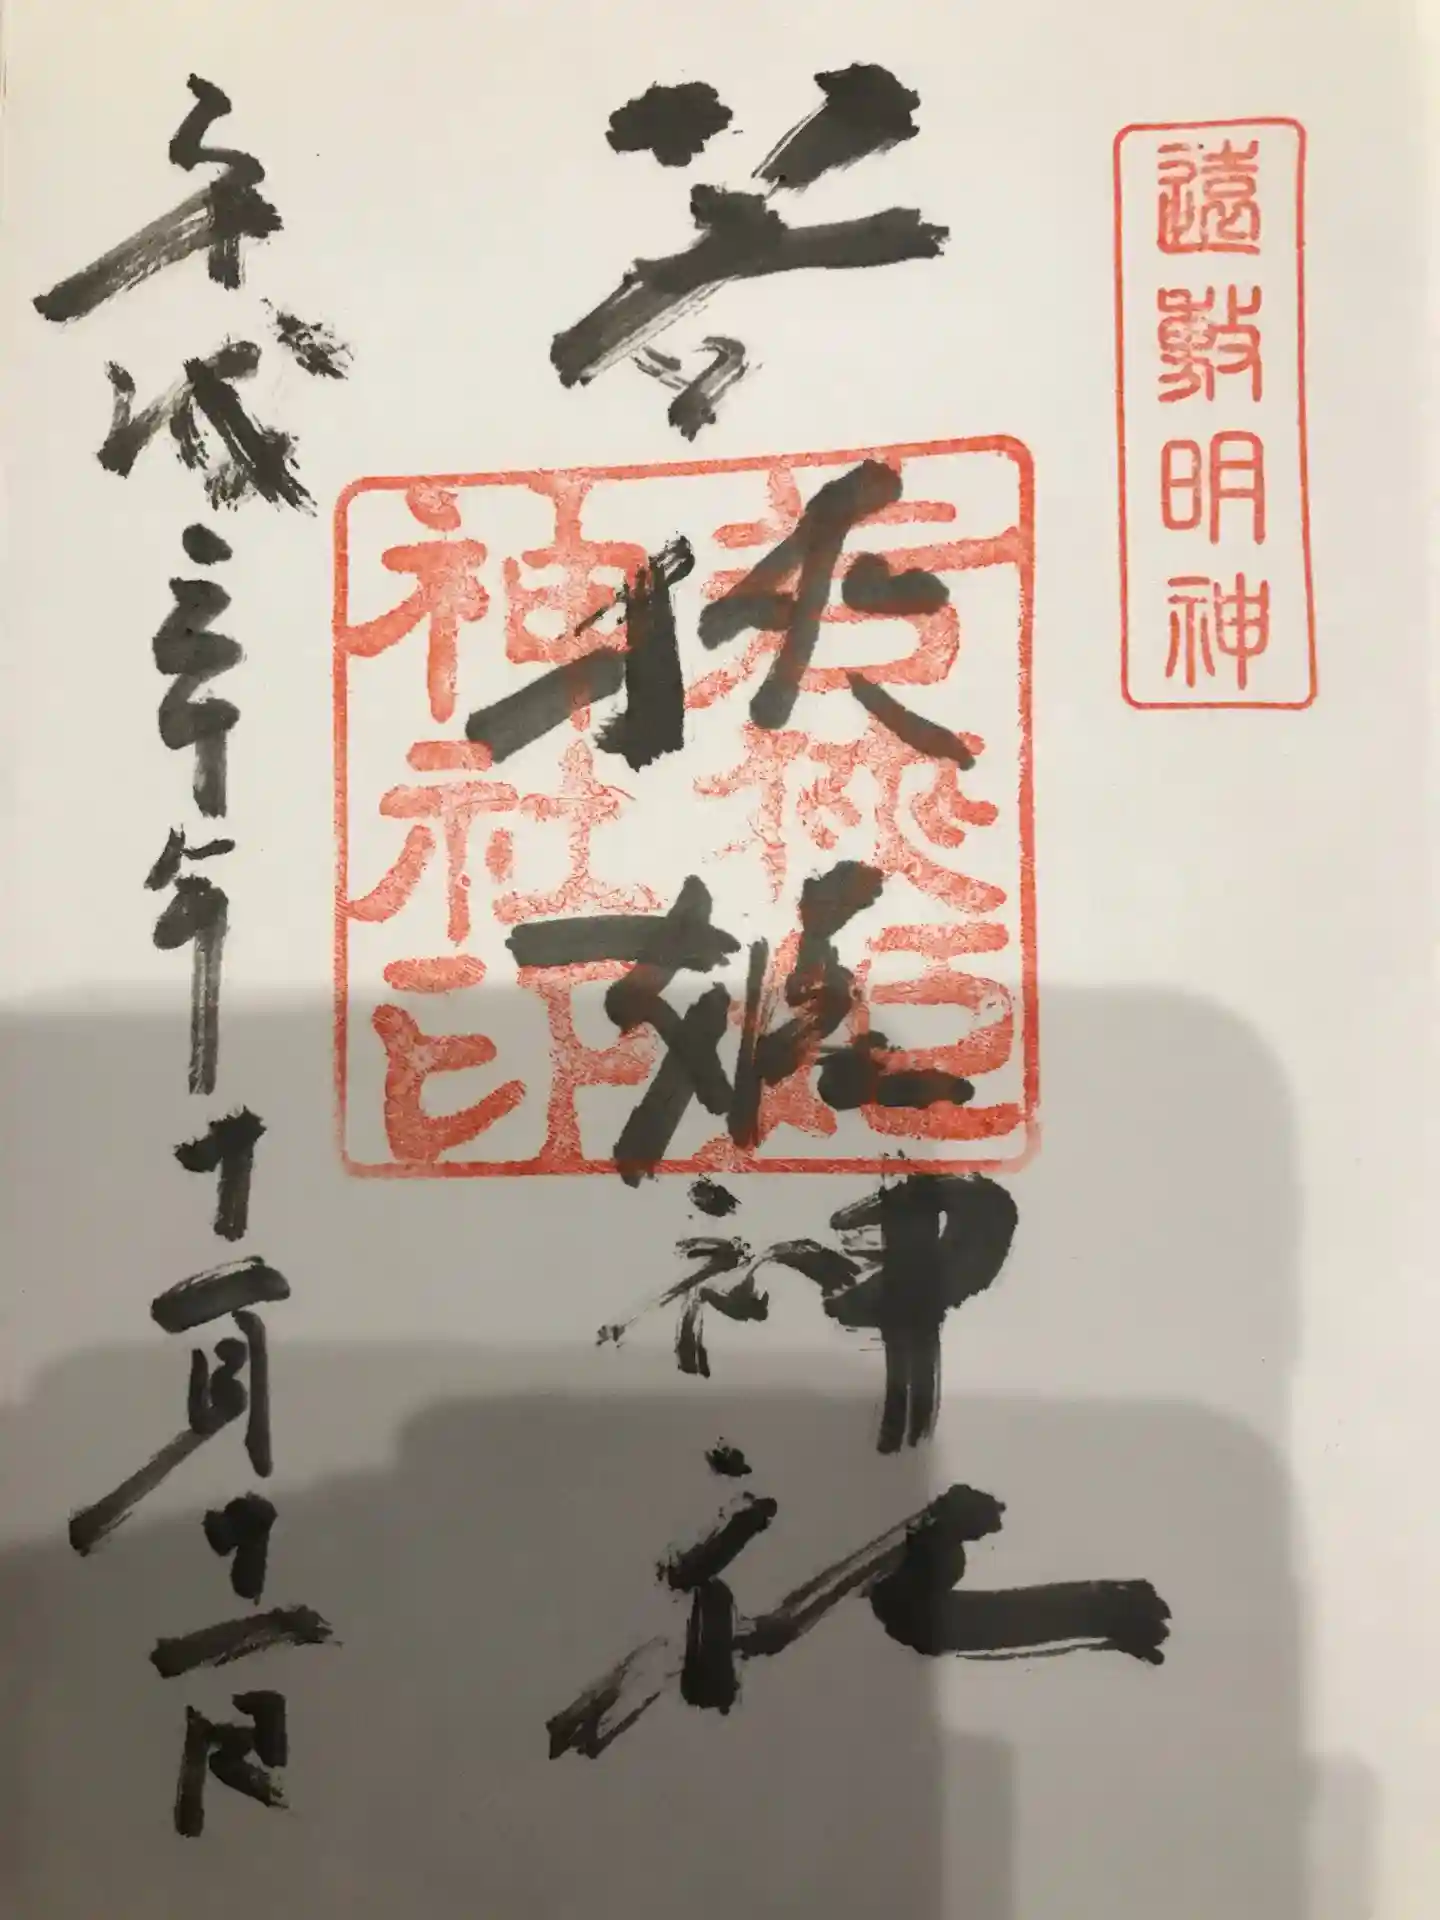 遠敷明神
若狭姫神社
若狹姫神社印
平成三十年十一月十一日